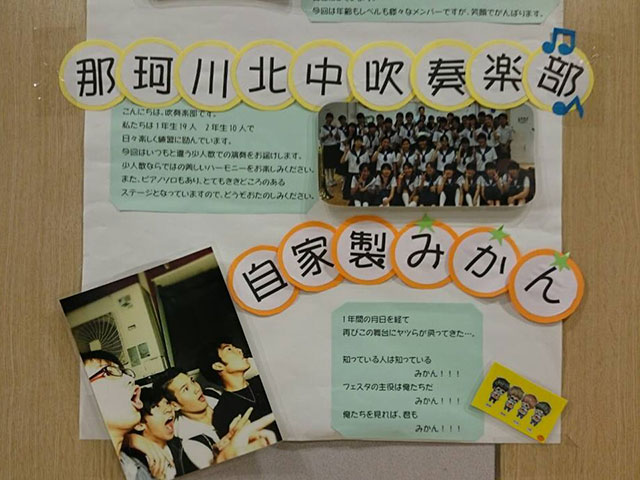 今回は年齢もレベルも様々なメンバーですが、笑顔でがんばります。
那珂川北中吹奏楽部
こんにちは、吹奏楽部です。
私たちは1年生19人 2年生10人で
日々楽しく練習に励んでいます。
今回はいつもと違う少人数での演奏をお届けします。
少人数ならではの美しいハーモニーをお楽しみください。
また、ピアノソロもあり、とてもききどころのある
ステージとなっていますので、どうぞおたのしみください。
自家製みかん
1年間の月日を経て
再びこの舞台にヤツらが戻ってきた…。
知っている人は知っている
みかん!!!
フェスタの主役は俺たちだ
みかん!!!
俺たちを見れば、君も
みかん!!!